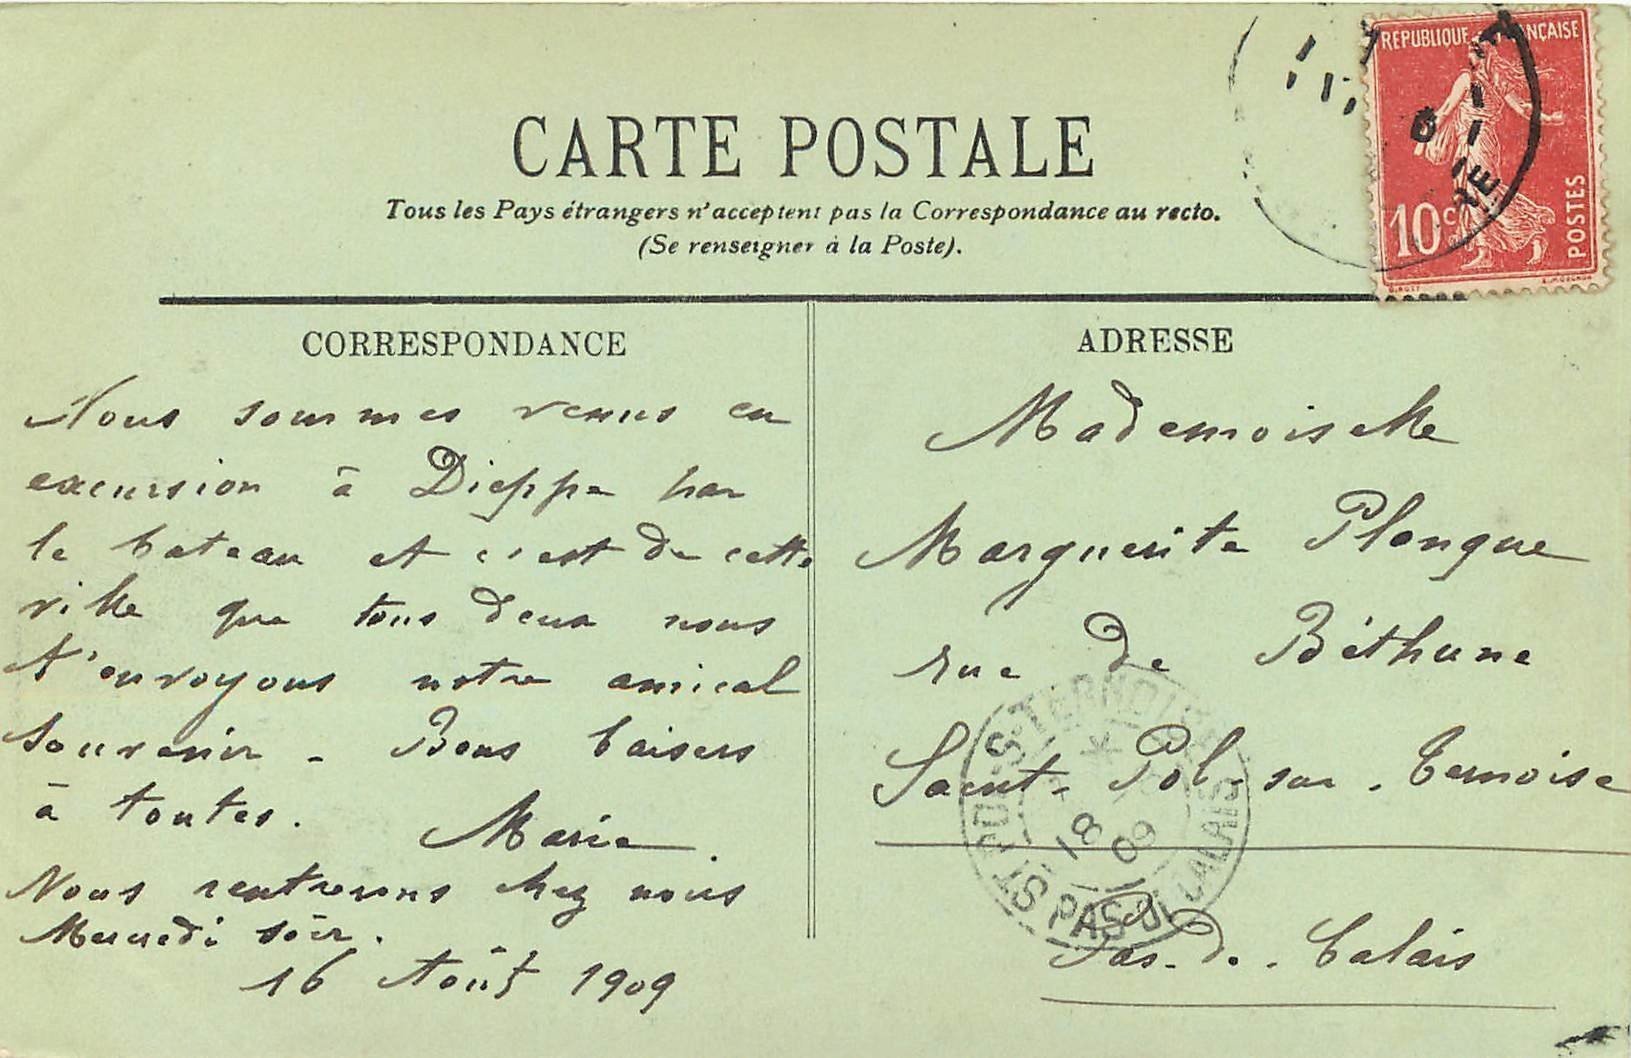 CARTE POSTALE
Tous les Pays étrangers n'acceptent pas la Correspondance au recto.
(Se renseigner à la Poste).
REPUBLIQUE FRANÇAISE
10c
POSTES
CORRESPONDANCE
Nous sommes venus en
excursion à Dieppe par
le bateau et c'est de cette
ville que tous deux nous
t'envoyons notre amical
souvenir - Bons baisers
à toutes.
Marie.
Nous rentrerons chez nous
Mercredi soir.
16 Août 1909
ADRESSE
Mademoiselle
Marguerite Plonque
rue de Béthune
Saint-Pol-sur-Ternoise
Pas-de-Calais
ST POL-S-TERNOISE
18
8
09
PAS DE CALAIS